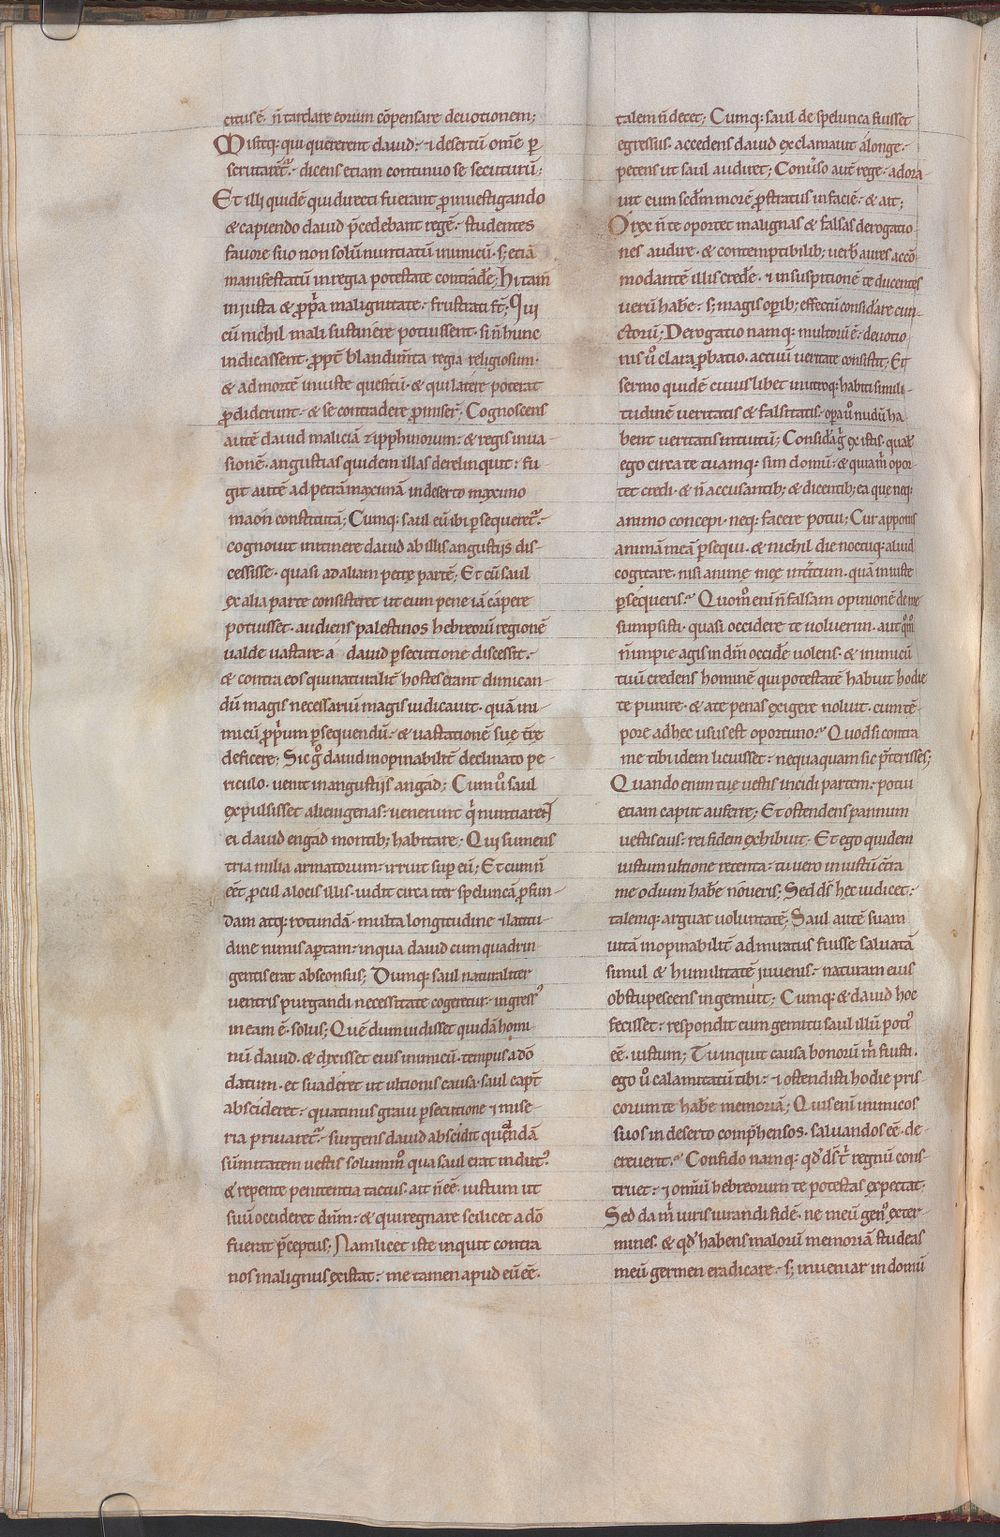 citus ē. n̄ tardare eorum cōpensare deuotionem;
Misitq; qui quererent dauid. ⁊ desertū om̄e ꝑ
scrutaretr̄. dicens etiam continuo se secuturū;
Et illi quidē qui directi fuerant ꝓ inuestigando
& capiendo dauid p̄cedebant regē. studentes
fauore suo non solū nuntiatū inimicū. s; etiā
manifestatū in regia potestate contradē; Hi tam̄
iniusta & ꝓpⁱa malignitate. frustrati s̄t; Qui
cū nichil mali sustinere potuissent. si n̄ hunc
indicassent. ꝓpt̄ blandim̄ta regia religiosum.
& ad mortē iniuste quesitū. & qui latere poterat
ꝓdiderunt. & se contradere ꝓmiser̄; Cognoscens
autē dauid maliciā zipphinorum. & regis inua-
sionē. angustias quidem illas derelinquit. fu-
git autē ad petrā maximā in deserto maximo
maon constitutā; Cumq; saul eū ibi ꝑsequeretr̄.
cognouit in itinere dauid ab illis angustijs dis-
cessisse. quasi ad aliam petrę partē; Et cū saul
ex alia parte consisteret ut eum pene iā capere
potuisset. audiens palestinos hebreorū regionē
ualde uastare. a dauid ꝑsecutione discessit.
& contra eos qui naturalit̄ hostes erant dimican-
dū magis necessariū magis iudicauit. quā ini-
micū ꝓpⁱum ꝑsequendū. & uastationē suę t̄rę
deficere; Sic gͦ dauid inopinabilit̄ declinato pe-
riculo. uenit in angustijs angad; Cum uͦ saul
expulsisset alienigenas. uenerunt qⁱ nuntiarent
ei dauid engad montib; habitare; Qui sumens
tria milia armatorum. irruit suꝑ eū; Et cum n̄
eēt ꝓcul a locis illis. uidit circa iter speluncā ꝓfun-
dam atq; rotundā. multa longitudine ⁊ latitu-
dine nimis aꝑtam. in qua dauid cum quadrin
gentis erat absconsus; Dumq; saul naturaliter
uentris purgandi necessitate cogeretur. ingressꝰ
in eam ē. solus; Quē dum uidisset quidā homi-
nū dauid. & dixisset eius inimicū. tempus a dō
datum. et suaderet ut ultionis causa. saul capⁱt
abscideret. quatinus graui ꝑsecutione ⁊ mise-
ria priuaretr̄. surgens dauid abscidit quendā
sūmitatem uestis solummͦ qua saul erat indutꝰ.
& repente penitentia tactus. ait n̄ eē. iustum ut
suū occideret dn̄m. & qui regnare scilicet a dō
fuerat p̄ceptus; Nam licet iste inquit contra
nos malignus existat. me tamen apud eū eē.
talem n̄ decet; Cumq; saul de spelunca fuisset
egressus. accedens dauid exclamauit a longe.
petens ut saul audiret; Conuͥso autē rege. adora-
uit eum scd̄m morē ꝓstratus in faciē. & ait;
O rex n̄ te oportet malignas & falsas derogatio
nes audire. & contemptibilib; uerbͥs aures accō
modantē illis credē. ⁊ in suspitionē te ducentes
uerū habē. s; magis oꝑib; effectū considare cun-
ctorū; Derogatio namq; multorū ē. deuotio
nis uͦ clara ꝓbatio. actuū ueritate consistit; Et
sermo quidē cuiuslibet in utroq; habet simili-
tudinē ueritatis & falsitatis. oꝑa uͦ nudū ha-
bent ueritatis intuitū; Considᵃ gͦ ex istis. qual̄
ego circa te tuamq; sim domū. & quia m̄ opor-
tet credi. & n̄ accusantib; & dicentib; ea que neq;
animo concepi. neq; facere potui; Cur apponis
animā meā ꝑsequi. & nichil die noctuq; aliud
cogitare. nisi animę meę int̄itum. quā iniuste
ꝑsequeris.ͣ Quom̄ eni n̄ falsam opinionē de me
sumpsisti. quasi occidere te uoluerim. aut qͦmͦ
n̄ impie agis in dm̄ occidē uolens. & inimicū
tuū credens hominē qui potestatē habuit hodie
te punire. & a te penas exigere noluit. cum tē-
pore adhec usus est oportuno.ͣ Quod si contra
me tibi idem licuisset. nequaquam sic p̄terisses;
Quando enim tuę uestis incidi partem. potui
etiam caput auferre; Et ostendens pannum
uestis eius. rei fidem exhibuit. Et ego quidem
iustum ultione retenta. tu uero iniustū c̄tra
me odium habē noueris; Sed ds̄ hec iudicet.
talemq; arguat uoluntatē; Saul autē suam
uitā inopinabilit̄ admiratus fuisse saluatā
simul & humilitatē iuuenis. naturam eius
obstupescens ingemuit; Cumq; & dauid hoc
fecisset. respondit cum gemitu saul illū potiꝰ
eē. iustum; Tu inquit causa bonorū m̄ fuisti.
ego uͦ calamitatū tibi. ⁊ ostendisti hodie pris-
corum te habē memoriā; Quis enī inimicos
suos in deserto comp̄hensos. saluandos eē. de-
creuerit.ͣ Confido namq; qd̄ ds̄ tͥ regnū cons-
truet. ⁊ omiū hebreorum te potestas expectat.
Sed da m̄ iuris iurandi fidē. ne meū genꝰ exter-
mines. & qd̄ habens malorū memoriā studeas
meū germen eradicare. s; inueniar in domū